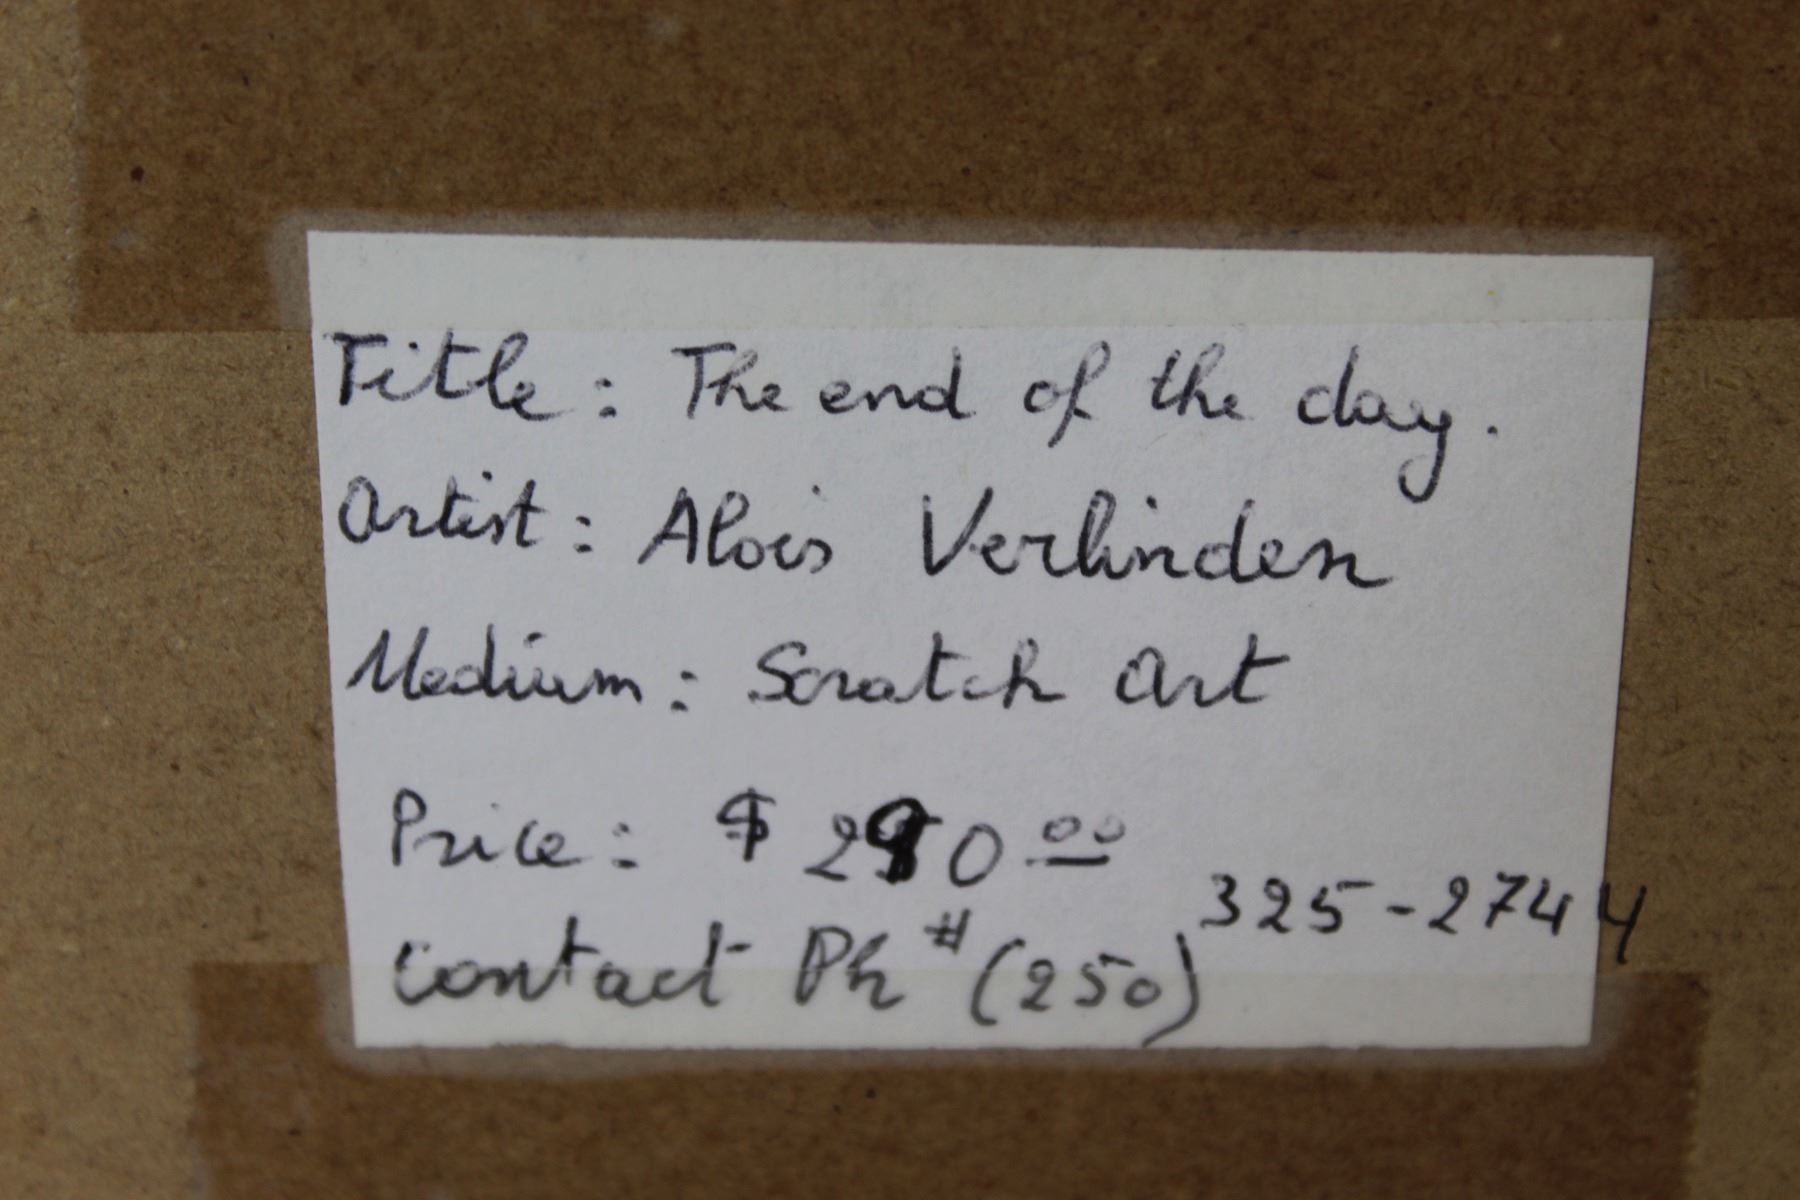 Title: The end of the day.
Artist: Alois Verlinden
Medium: Scratch Art
Price: $ 290.00
Contact Ph # (250) 325-2744